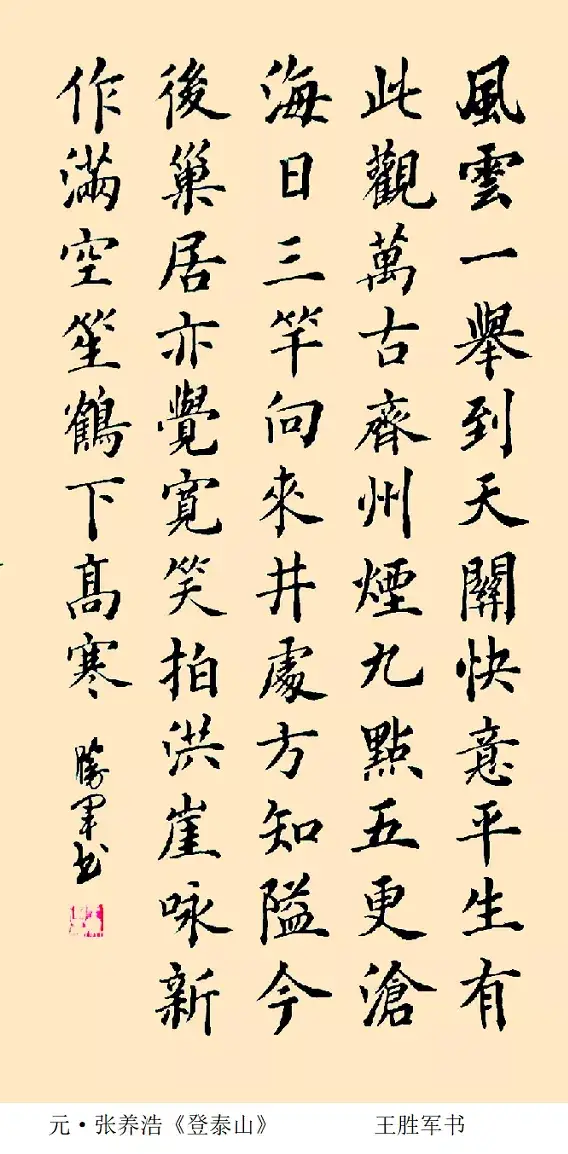 風雲一舉到天關快意平生有
此觀萬古齊州煙九點五更滄
海日三竿向來井處方知隘今
後巢居亦覺寬笑拍洪崖咏新
作滿空笙鶴下高寒
勝军书
元·张养浩《登泰山》 王胜军书